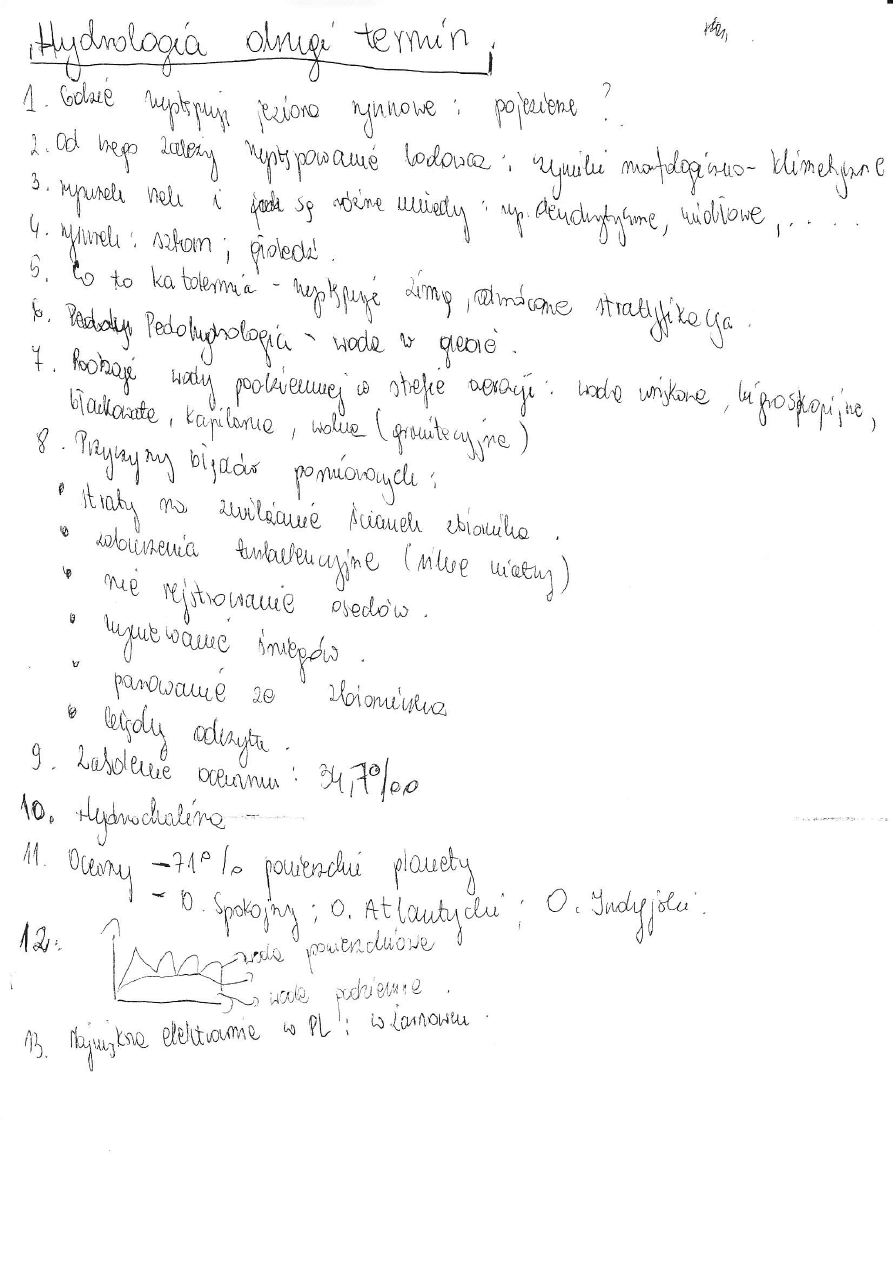 Hydrologia drugi termin
1. Gdzie występują jeziora rynnowe : pojezierze ?
2. Od czego zależy występowanie lodowca : czynniki morfologiczno - klimatyczne
3. rysunek rzeki i jakie są różne : np. dendrytyczne, widłowe, . . . .
4. rysunek : szkom ; gołedź .
5. Co to katotermia - występuje zimą, odwrócona stratyfikacja .
6. Pedohydrologia - woda w glebie .
7. Rodzaje wody podziemnej w strefie aeracji : woda związana, higroskopijne,
błonkowata, kapilarna, wolna (grawitacyjne)
8. Przyczyny błędów pomiarowych :
• straty na zwilżanie ścianek zbiornika .
• zaburzenia turbulencyjne (silne wiatry)
• nie rejstrowanie osadów .
• wywiewanie śniegów .
• parowanie ze zbiorniczka
• błędy odczytu .
9. Zasolenie oceanu : 34,7‰
10. Hydrohalina -
11. Oceany - 71% powierzchni planety
- O. Spokojny ; O. Atlantycki ; O. Indyjski .
12.
woda powierzchniowe
woda podziemne .
13. Największa elektrownie w PL : w Żarnowcu .